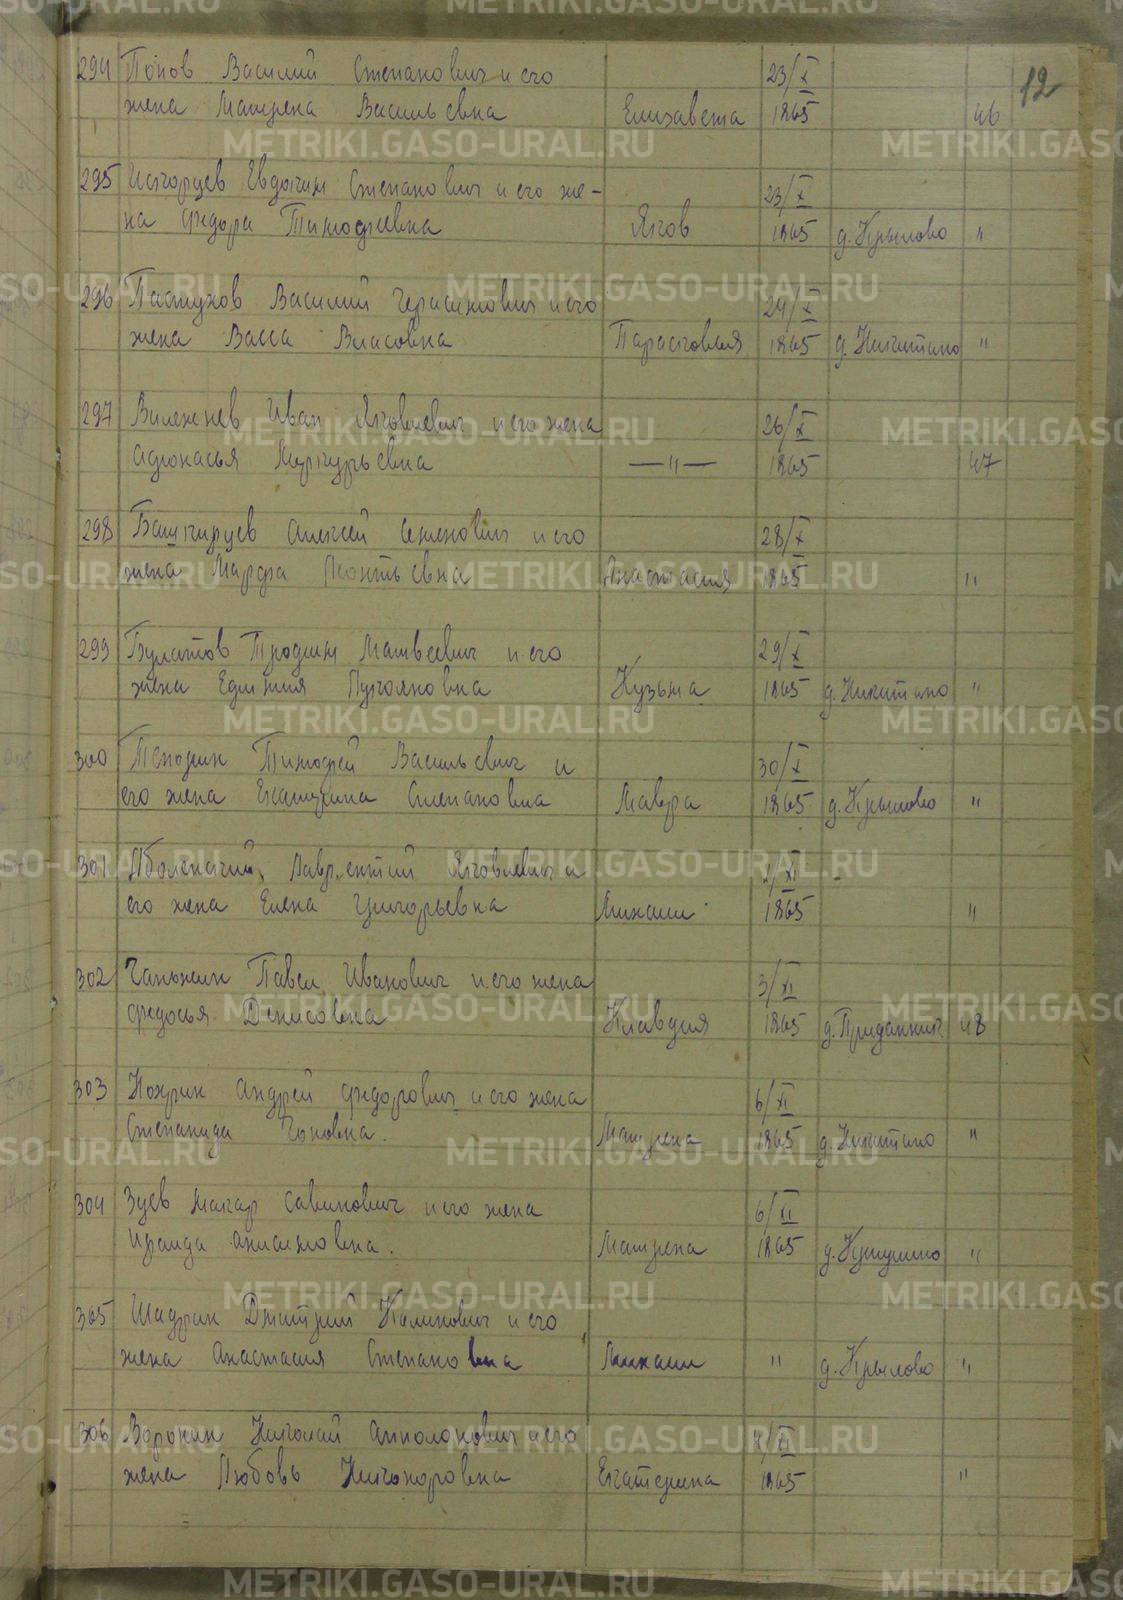 12
294 Попов Василий Степанович и его 23/X
жена Матрена Васильевна Елизавета 1865 46
295 Евдоким Степанович и его же- 23/X
на Федора Тимофеевна Яков 1865 д. Крылово "
296 Пастухов Василий Герасимович и его 24/X
жена Васса Власовна Парасковия 1865 д. Никитино "
297 Вилежнев Иван Яковлевич и его жена 26/X
Афонасья Меркурьевна —"— 1865 47
298 Башкирцев Алексей Семенович и его 28/X
жена Марфа Леонтьевна Анастасия 1865 "
299 Булатов Трофим Матвеевич и его 29/X
жена Ефимия Лукояновна Кузьма 1865 д. Никитино "
300 Тимофей Васильевич и 30/X
его жена Екатерина Степановна Мавра 1865 д. Крылово "
301 Лаврентий Яковлевич и 2/XI
его жена Елена Григорьевна Михаил 1865 "
302 Павел Иванович и его жена 3/XI
Федосья Денисовна Клавдия 1865 48
303 Андрей Федорович и его жена 6/XI
Степанида Матрена 1865 д. Никитино "
304 Зуев Макар Савинович и его жена 6/XI
Ираида Анисимовна. Матрена 1865 "
305 Шадрин Дмитрий Калинович и его
жена Анастасия Степановна Михаил " д. Крылово "
306 Воронин Николай Апполонович и его /XI
жена Любовь Никоноровна Екатерина 1865 "
METRIKI.GASO-URAL.RU